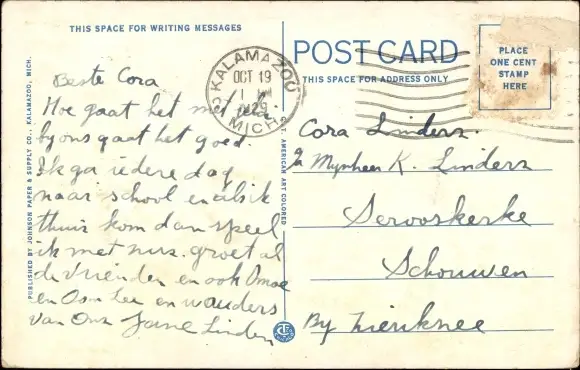 THIS SPACE FOR WRITING MESSAGES
Beste Cora
Hoe gaat het met
by ons gaat het goed.
Ik ga iedere dag
naar school en als ik
thuis kom dan speel
ik met nus. groet al
de Vrienden en ook Omoe
en Oom Lee en wauders
van Ons Jane Linden
PUBLISHED BY JOHNSON PAPER & SUPPLY CO., KALAMAZOO, MICH.
C.T. AMERICAN ART COLORED
KALAMAZOO
OCT 19
1929
MICH.
POST CARD
THIS SPACE FOR ADDRESS ONLY
PLACE
ONE CENT
STAMP
HERE
Cora Linders.
Mynheer K. Linders
Serooskerke
Schouwen
By Zierikzee